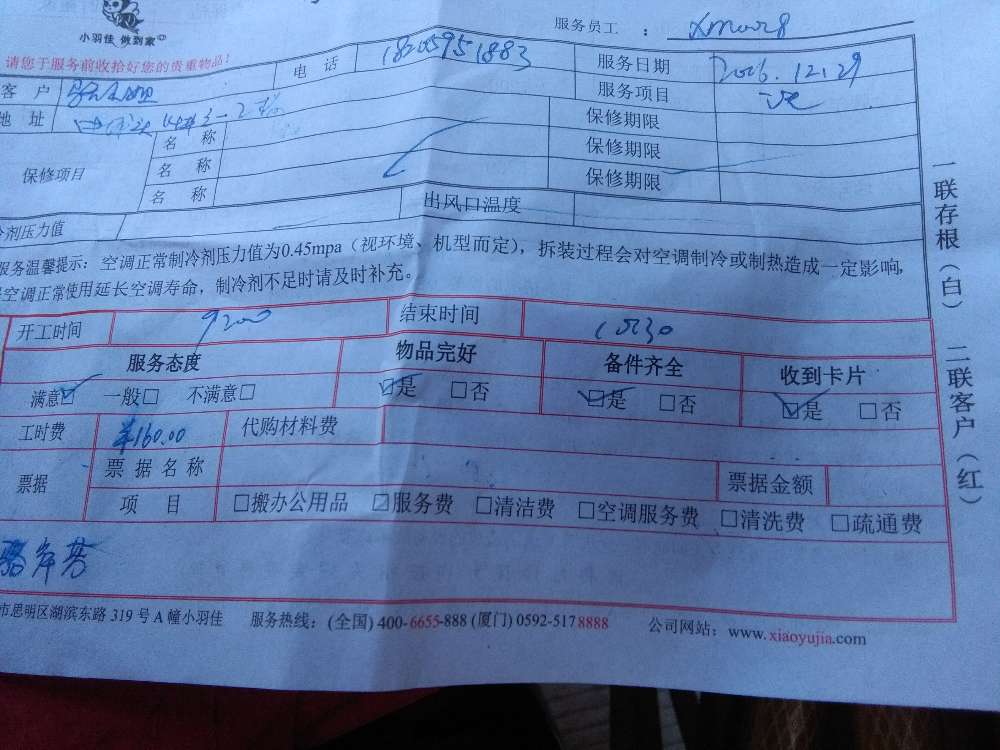 小羽佳 做到家
服务员工 :
请您于服务前收拾好您的贵重物品!
电 话 18205951883 服务日期 2016.12.29
客 户 服务项目
地 址 保修期限
保修项目 名 称 保修期限
名 称 保修期限
名 称
冷剂压力值 出风口温度
服务温馨提示：空调正常制冷剂压力值为0.45mpa（视环境、机型而定），拆装过程会对空调制冷或制热造成一定影响,
空调正常使用延长空调寿命，制冷剂不足时请及时补充。
开工时间 9:00 结束时间
服务态度 物品完好 备件齐全 收到卡片
满意☑ 一般□ 不满意□ ☑是 □否 ☑是 □否 ☑是 □否
工时费 ¥160.00 代购材料费
票据 票 据 名 称 票据金额
项 目 □搬办公用品 ☑服务费 □清洁费 □空调服务费 □清洗费 □疏通费
市思明区湖滨东路 319 号 A 幢小羽佳 服务热线：(全国) 400-6655-888 (厦门) 0592-5178888 公司网站：www.xiaoyujia.com
一联存根（白） 二联客户（红）